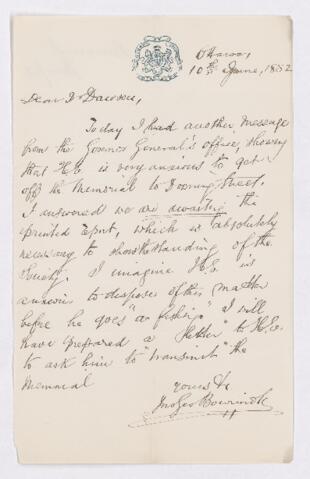 Ottawa,
10th June, 1882
Dear Dr Dawson,
Today I had another message
from the Govenor General's office, showing
that H.E. is very anxious to get
off the Memorial to Downing Street.
I answered we are awaiting the
printed Report, which is absolutely
necessary to show the standing of the
Society. I imagine H.E. is
anxious to dispose of this matter
before he goes "a fishing". I will
have prepared a letter to H.E.
to ask him to "transmit" the
Memorial
Yours &c
Jno Geo Bourinot